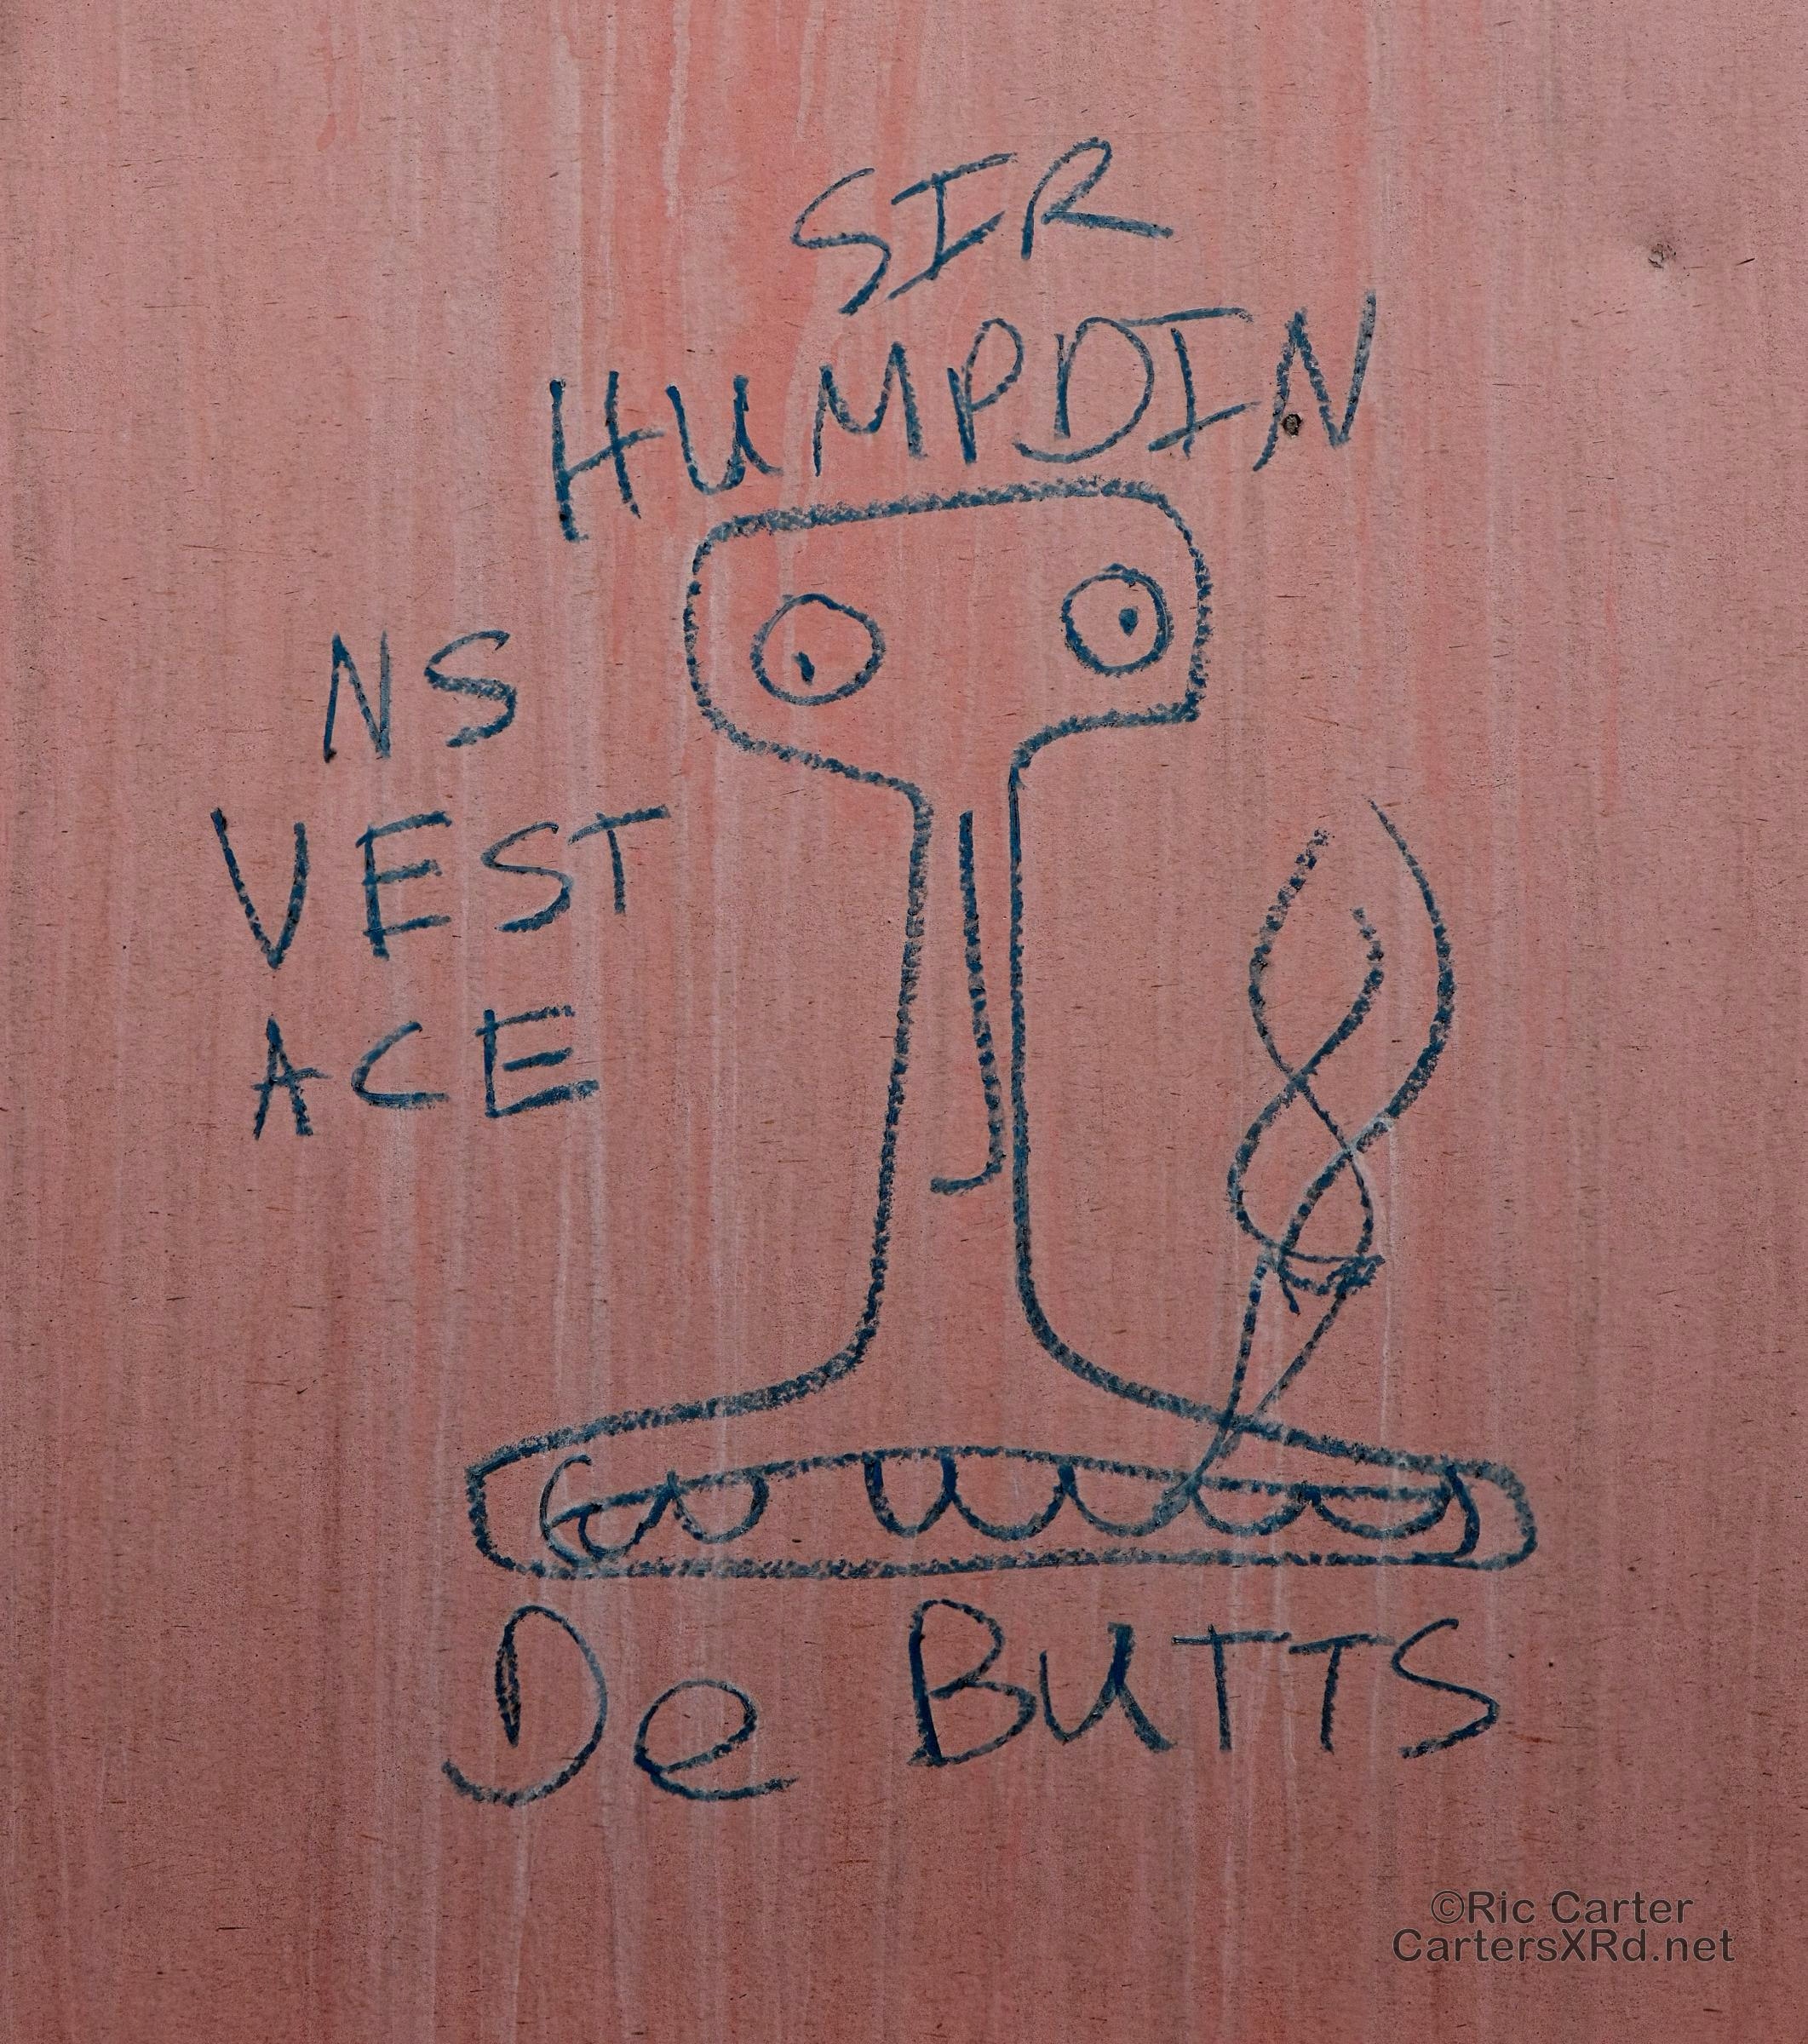 SIR
HUMPDIN
NS
VEST
ACE
De BUTTS
©Ric Carter
CartersXRd.net